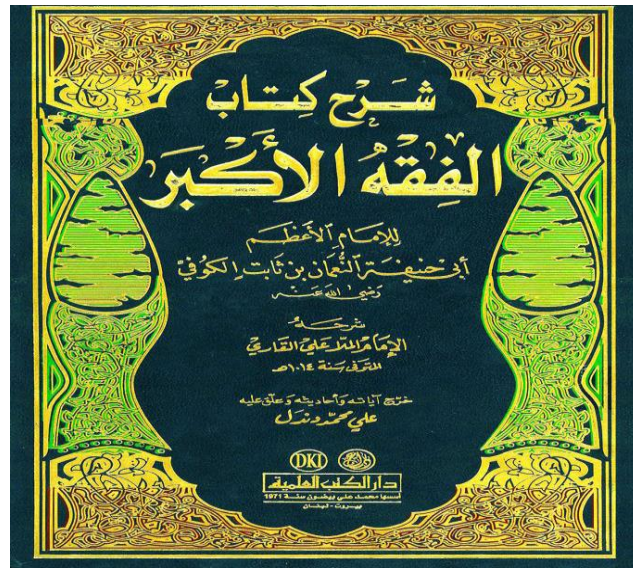 شرح كتاب
الفقه الأكبر
للإمام الأعظم
أبي حنيفة النعمان بن ثابت الكوفي
رضي الله عنه
شرحه
الإمام الملا علي القاري
المتوفى سنة ١٠١٤هـ
خرج آياته وأحاديثه وعلق عليه
علي محمد دندل
DKI
دار الكتب العلمية
أسسها محمد علي بيضون سنة 1971
بيروت - لبنان